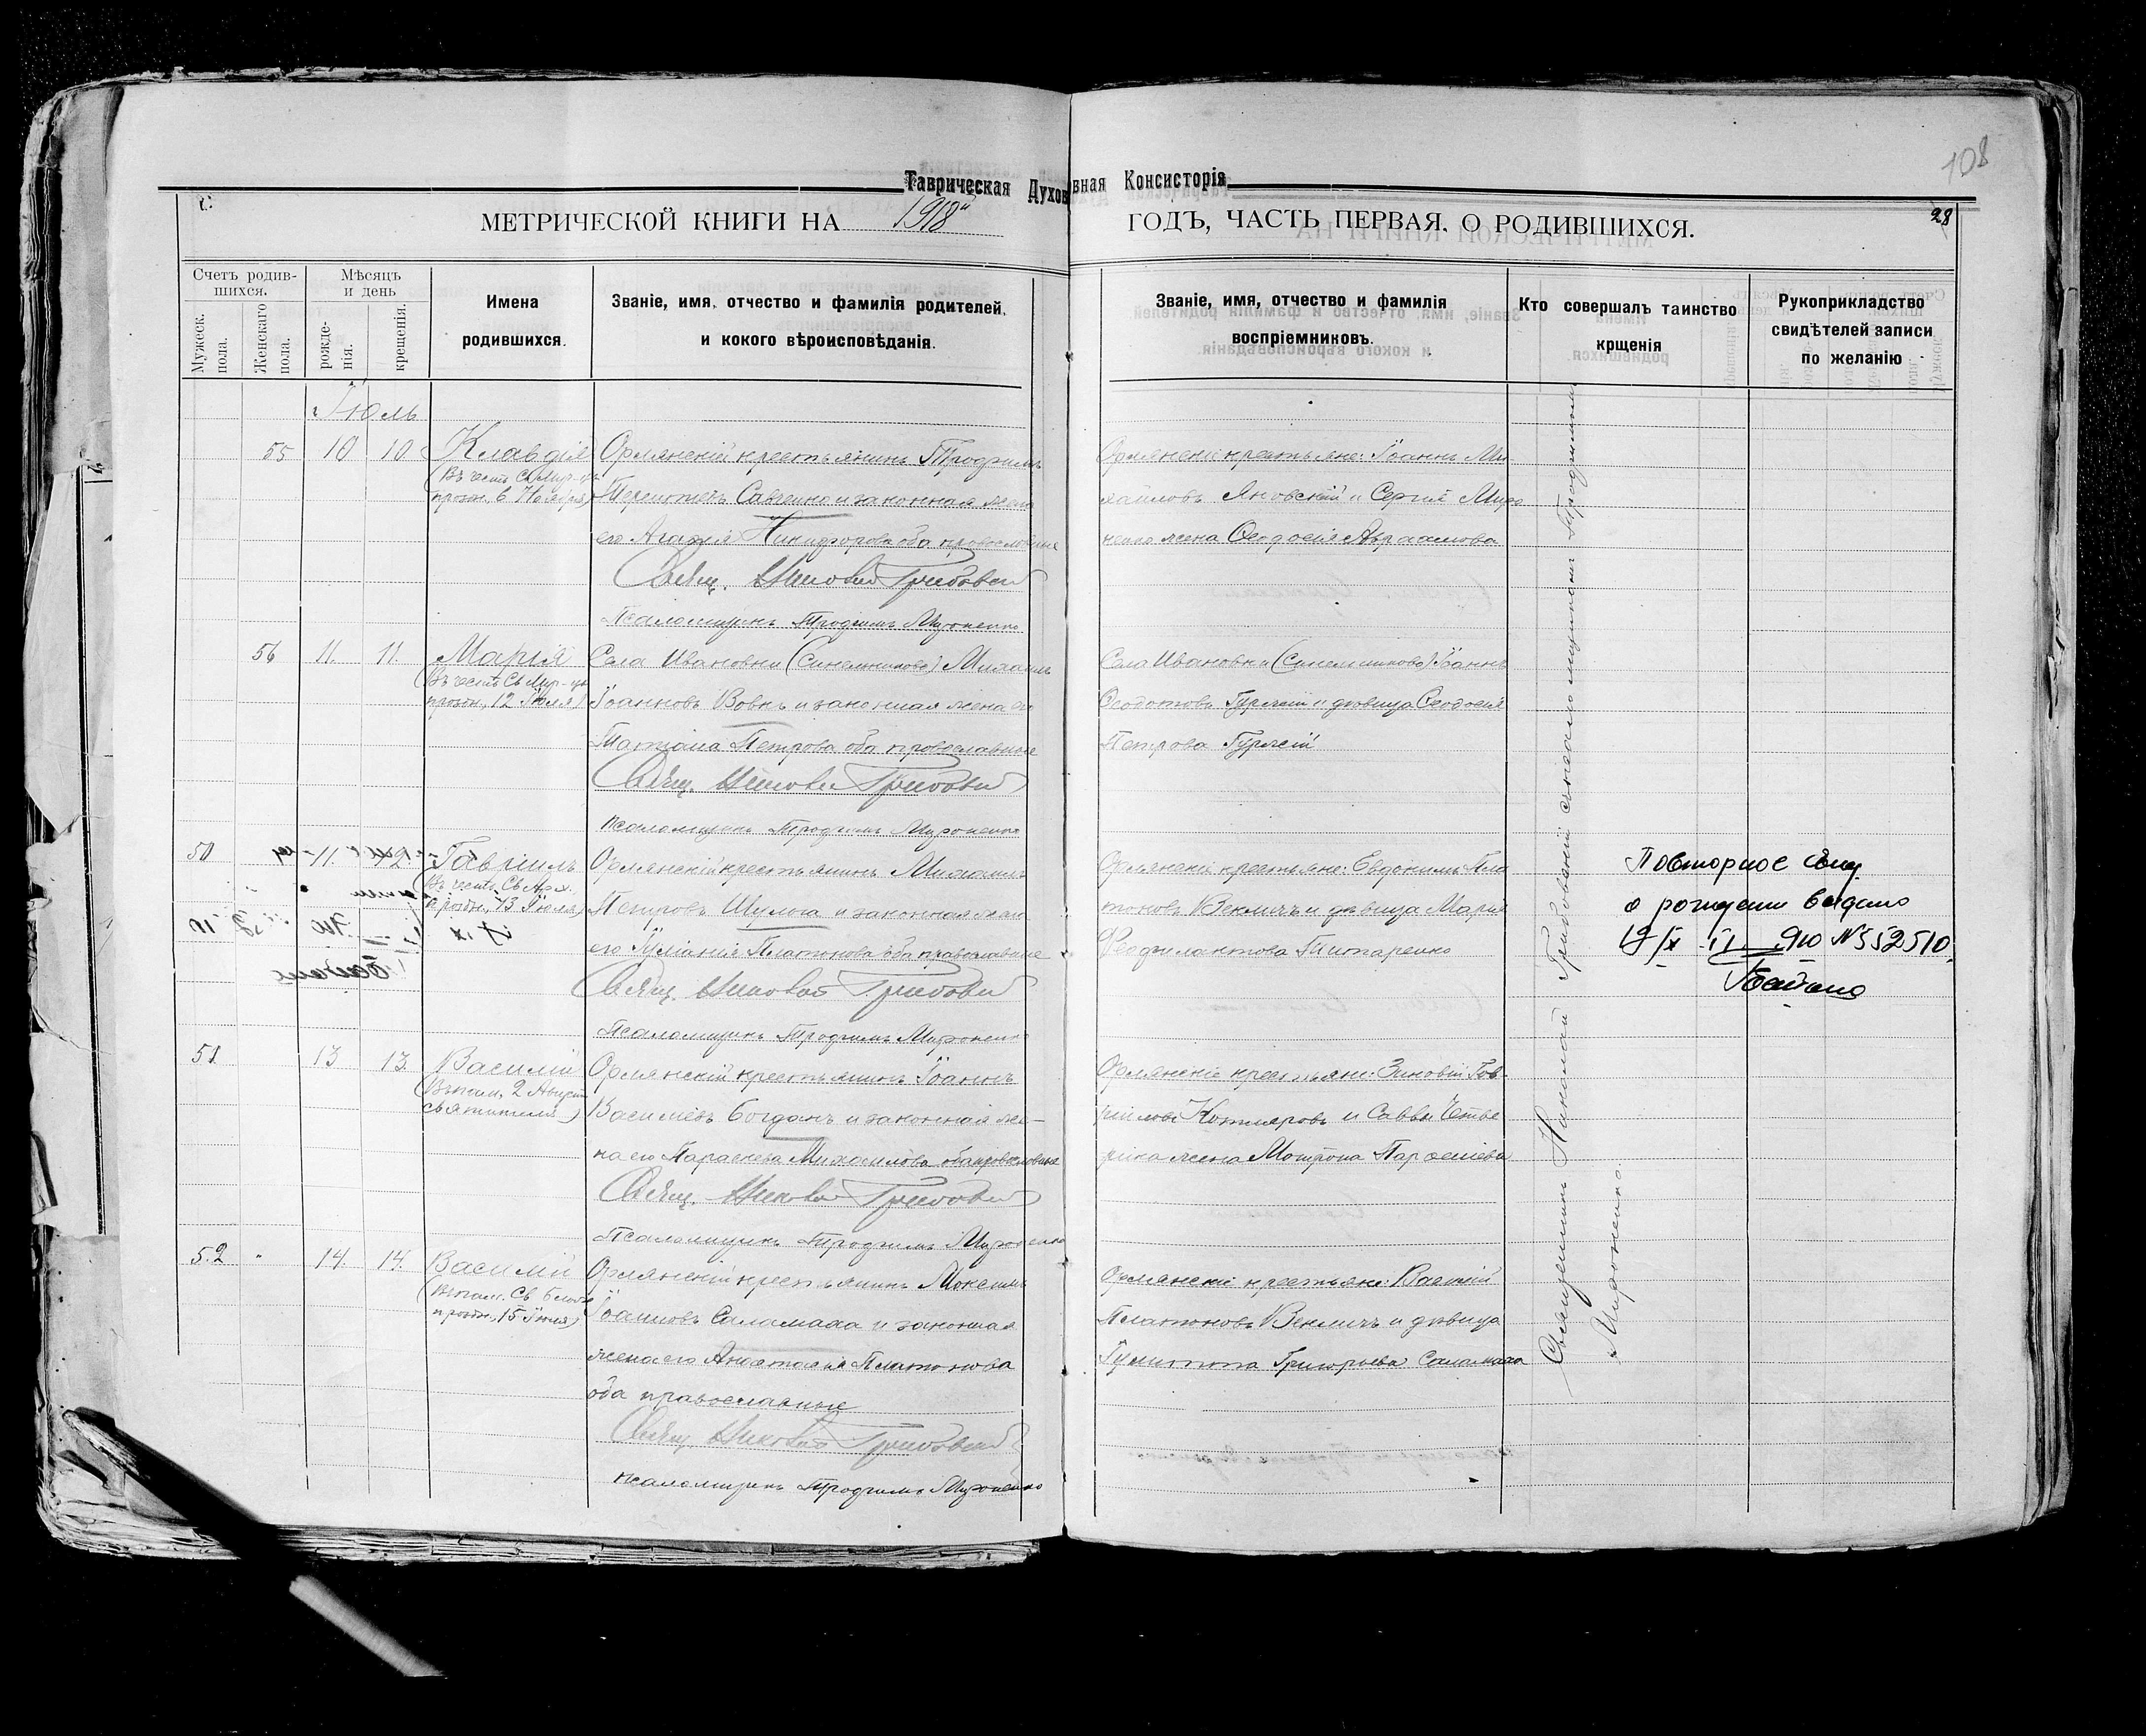 108
Таврическая Духовная Консисторія
МЕТРИЧЕСКОЙ КНИГИ НА 1918й ГОДЪ, ЧАСТЬ ПЕРВАЯ, О РОДИВШИХСЯ.
28
Счетъ родив-
шихся.
Мужеск. пола.
Женскаго пола.
Мѣсяцъ
и день
рожде-
нія.
крещенія.
Имена
родившихся.
Званіе, имя, отчество и фамилія родителей,
и кокого вѣроисповѣданія.
Званіе, имя, отчество и фамилія
воспріемниковъ.
Кто совершалъ таинство
крщенія
Рукоприкладство
свидѣтелей записи
по желанію
Іюль
55 10 10 Клавдія
(Въ честь Св Муч-цы
празн. 6 Ноября)
Орлянскій крестьянинъ Трофимъ
Савченко и законная жена
его Агафія Никифорова оба православные
Свящ. Николай Грибовскій
Псаломщикъ Трофимъ Мироненко
Орлянскіе крестьяне: Іоаннъ Ми-
хайловъ Яновскій и Сергія Миро
ненко жена Ѳеодосія Авраамова
56 11. 11. Марія
(Въ честь Св Муч-цы
празн. 12 Іюля)
Села Ивановки (Синельниково) Михаилъ
Іоанновъ Вовкъ и законная жена его
Татіана Петрова оба православные
Свящ. Николай Грибовскій
псаломщикъ Трофимъ Мироненко
Села Ивановки (Синельниково) Іоаннъ
Ѳеодотовъ Гуржій и дѣвица Ѳеодосія
Петрова Гуржій
50 11. Гавріилъ
(Въ честь Св Арх.
празн. 13 Іюля)
Орлянскій крестьянинъ Михаилъ
Петровъ Шулога и законная жена
его Іуліанія Платонова оба православные
Свящ. Николай Грибовскій
Псаломщикъ Трофимъ Мироненко
Орлянскіе крестьяне: Евдокимъ Пла
тоновъ Векличъ и дѣвица Марія
Ѳеофилактова Титаренко
Повторное свид.
о рождении выдано
№ 552510
51 13 13. Василій
(Въ пам. 2 Август
святителя)
Орлянскій крестьянинъ Іоаннъ
Васильевъ Богданъ и законная же-
на его Параскева Михайлова оба православные
Свящ. Николай Грибовскій
Псаломщикъ Трофимъ Мироненко
Орлянскіе крестьяне: Зиновій Гав-
ріиловъ Котляровъ и Саввы Четве
рика жена Мотрона Парѳеніева
52 14. 14. Василій
празн. 15 Іюля)
Орлянскій крестьянинъ Максимъ
Іоанновъ Саламаха и законная
жена его Анастасія Платонова
оба православные
Свящ. Николай Грибовскій
псаломщикъ Трофимъ Мироненко
Орлянскіе крестьяне: Василій
Платоновъ Векличъ и дѣвица
Іулитта Григорьева Саламаха
Священникъ Николай Грибовскій съ псаломщикомъ Трофимомъ
Мироненко.